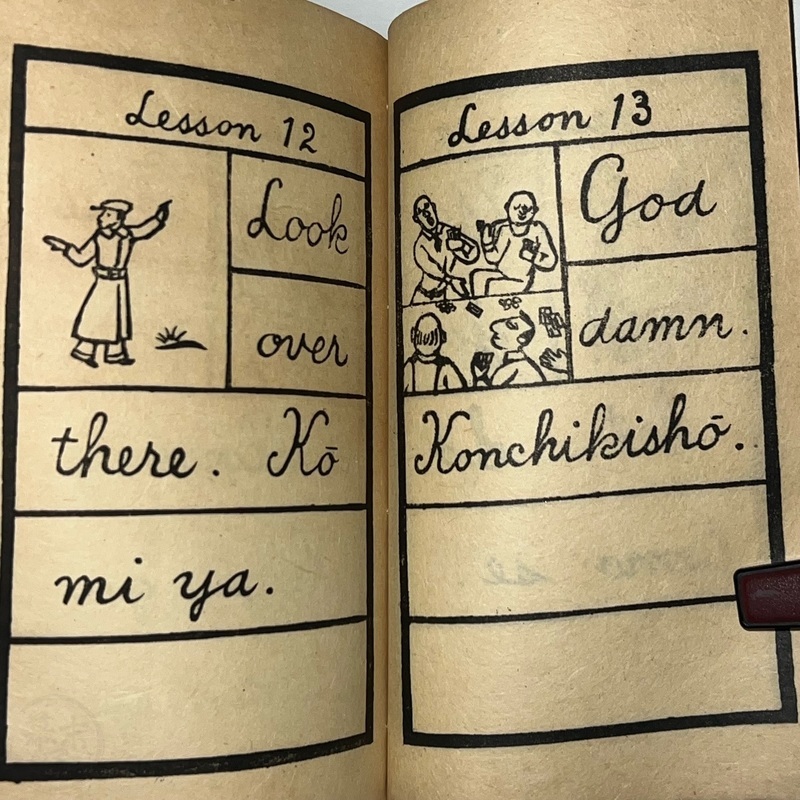 Lesson 12
Look
over
there. Kō
mi ya.
Lesson 13
God
damn.
Konchikishō.